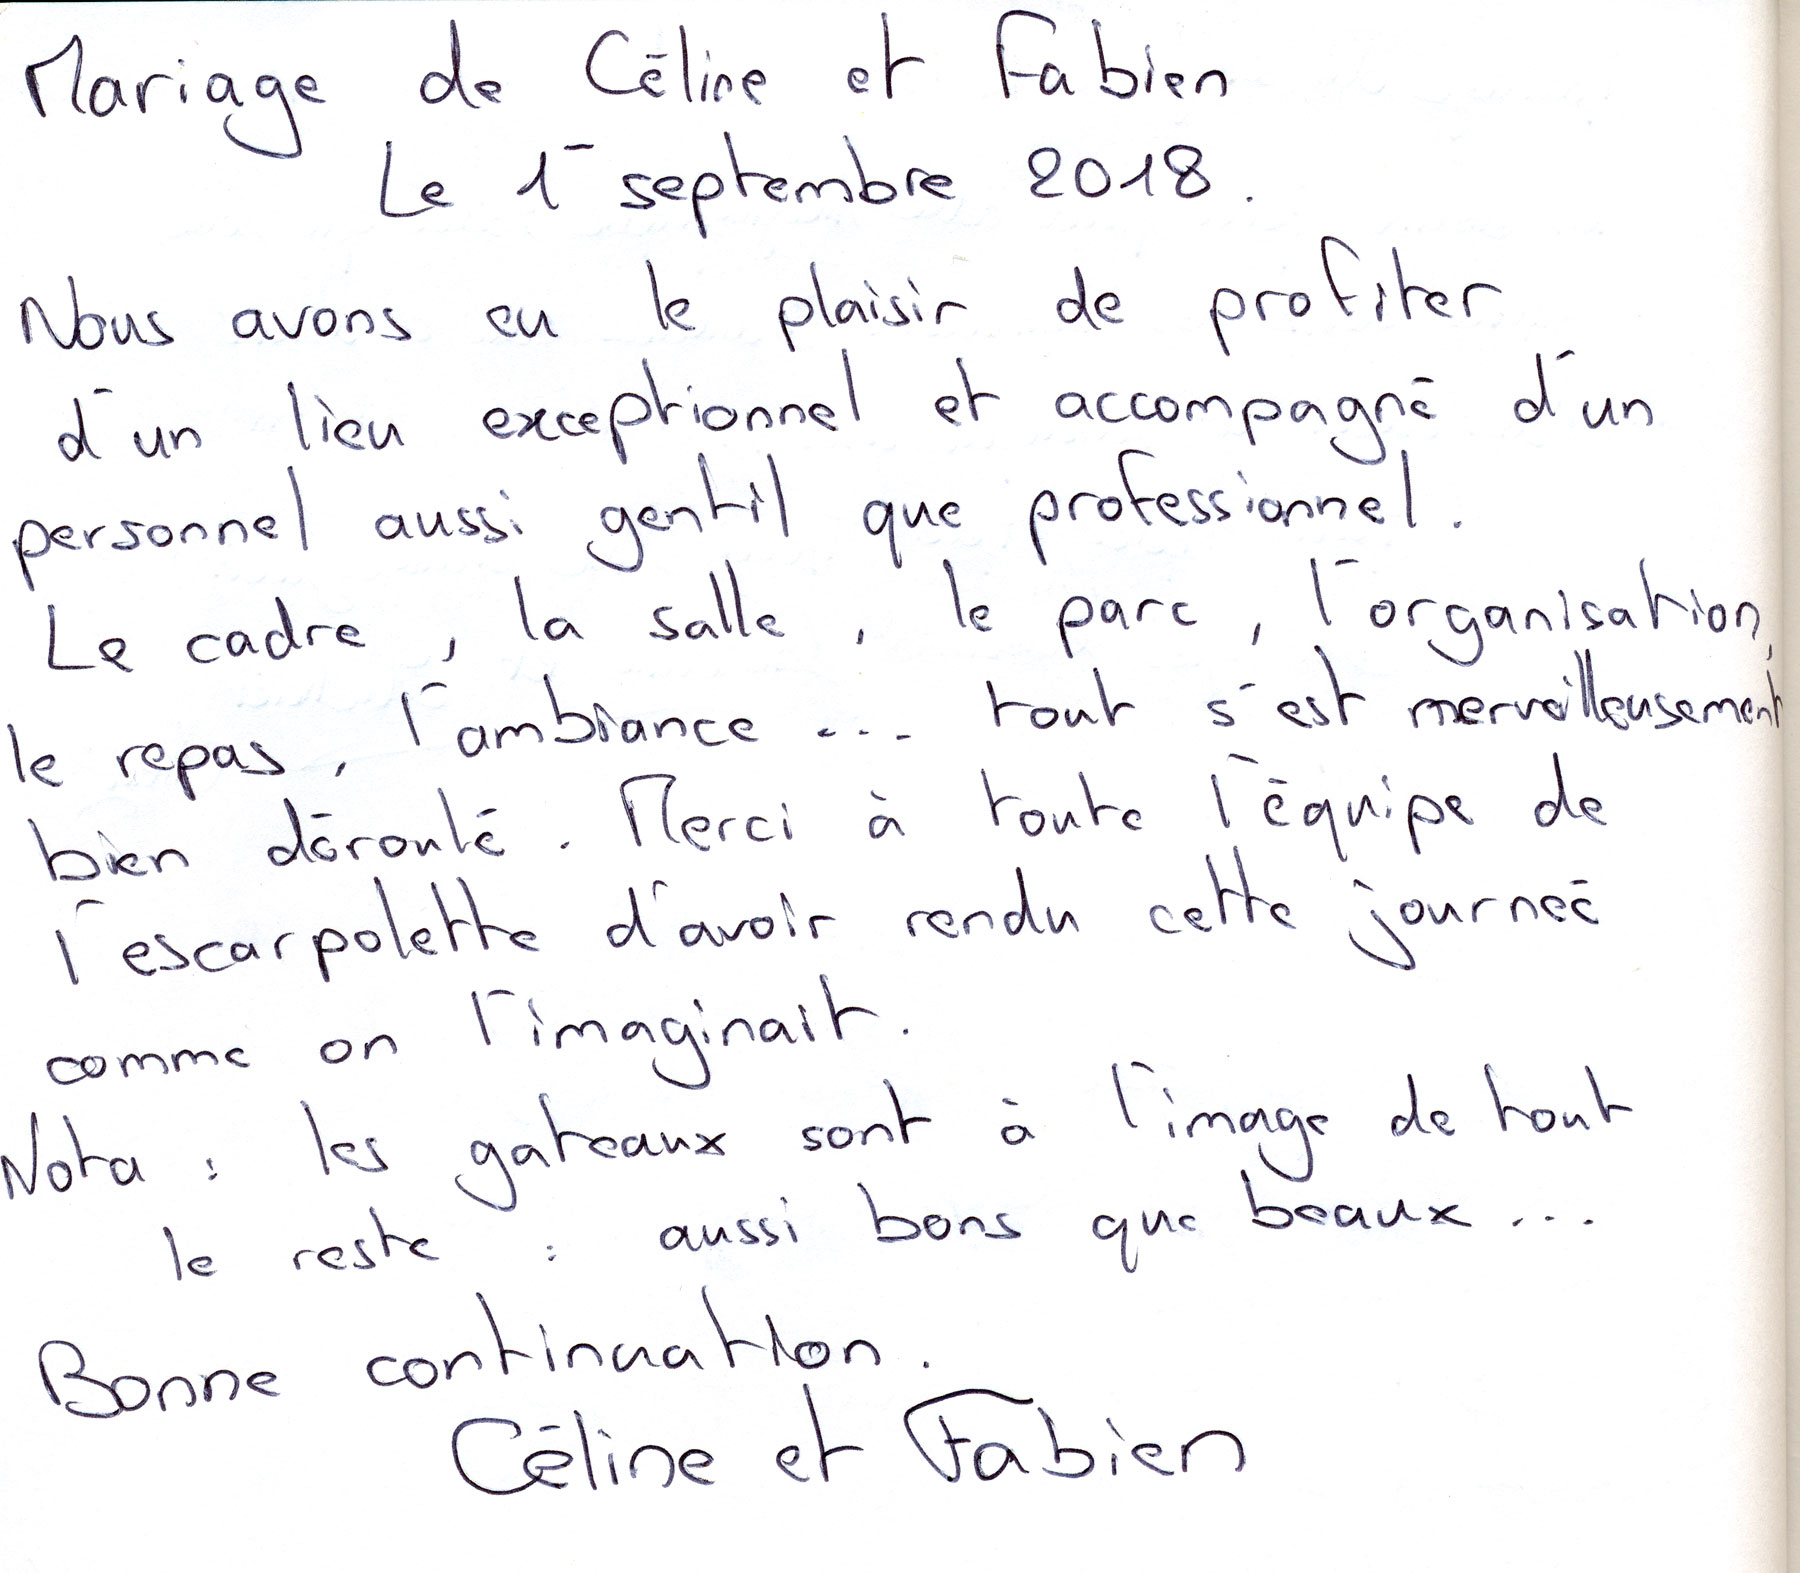 Mariage de Céline et Fabien
Le 1er septembre 2018.
Nous avons eu le plaisir de profiter
d'un lieu exceptionnel et accompagné d'un
personnel aussi gentil que professionnel.
Le cadre, la salle, le parc, l'organisation,
le repas, l'ambiance ... tout s'est merveilleusement
bien déroulé. Merci à toute l'équipe de
l'escarpolette d'avoir rendu cette journeé
comme on l'imaginait.
Nota : les gateaux sont à l'image de tout
le reste : aussi bons que beaux ...
Bonne continuation.
Céline et Fabien